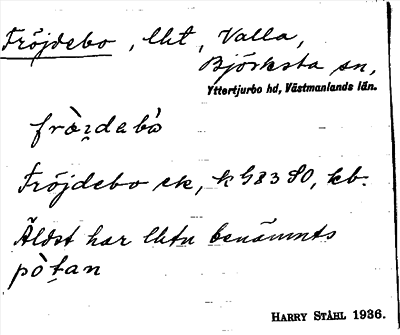 Fröjdebo, lht, Valla,
Björksta sn,
Yttertjurbo hd, Västmanlands län.
frò̀i̯debò
Fröjdebo ek, k 983 80, kb.
Äldst har lhtn benämnts
pò̀tan
HARRY STÅHL 1936.